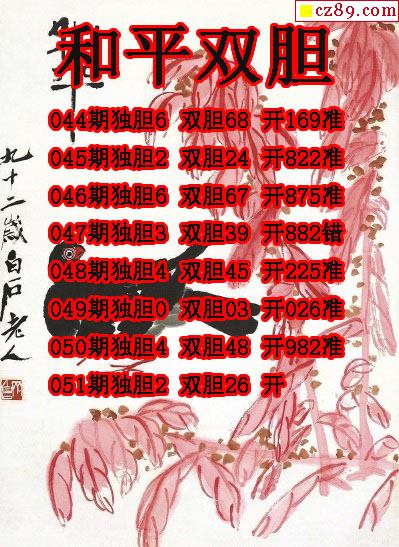 cz89.com
和平双胆
044期独胆6 双胆68 开169准
045期独胆2 双胆24 开822准
046期独胆6 双胆67 开875准
047期独胆3 双胆39 开882错
048期独胆4 双胆45 开225准
049期独胆0 双胆03 开026准
050期独胆4 双胆48 开982准
051期独胆2 双胆26 开
九十二岁白石老人